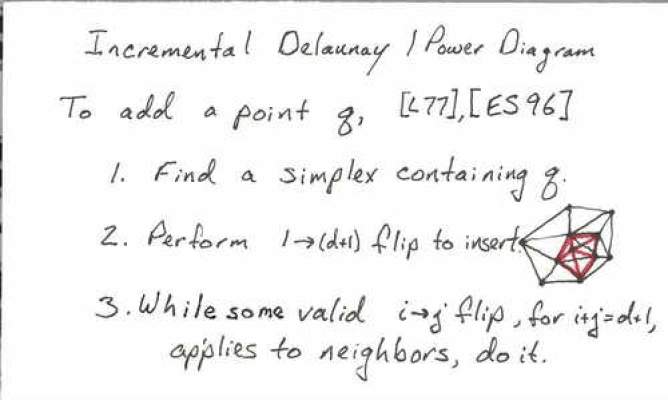 Incremental Delaunay / Power Diagram
To add a point q, [L77],[ES96]
1. Find a simplex containing q.
2. Perform 1→(d+1) flip to insert.
3. While some valid i→j flip, for i+j=d+1,
applies to neighbors, do it.